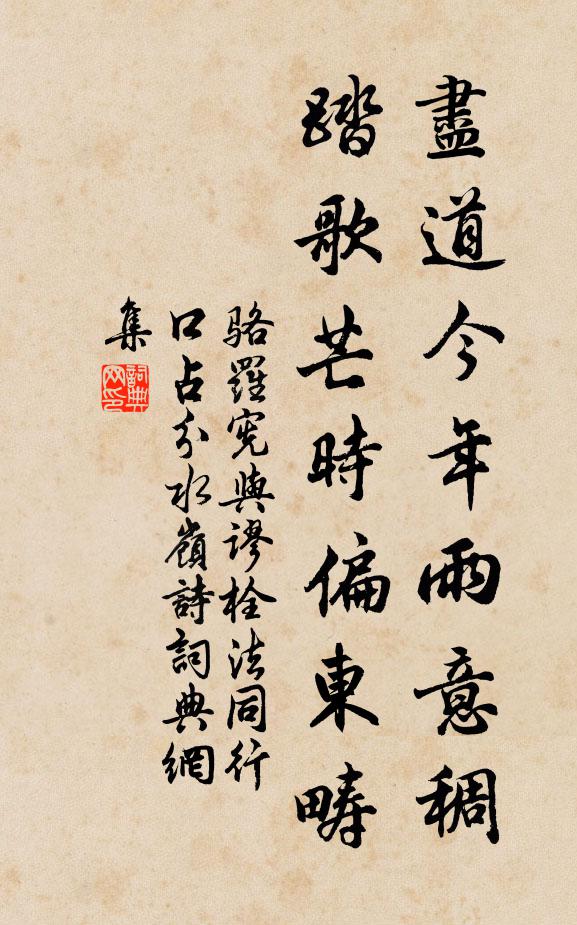 盡道今年雨意稠
踏歌芒時偏東疇
駱羅憲與謬栓法同行
口占分水嶺詩詞典網
集
詞典
网印